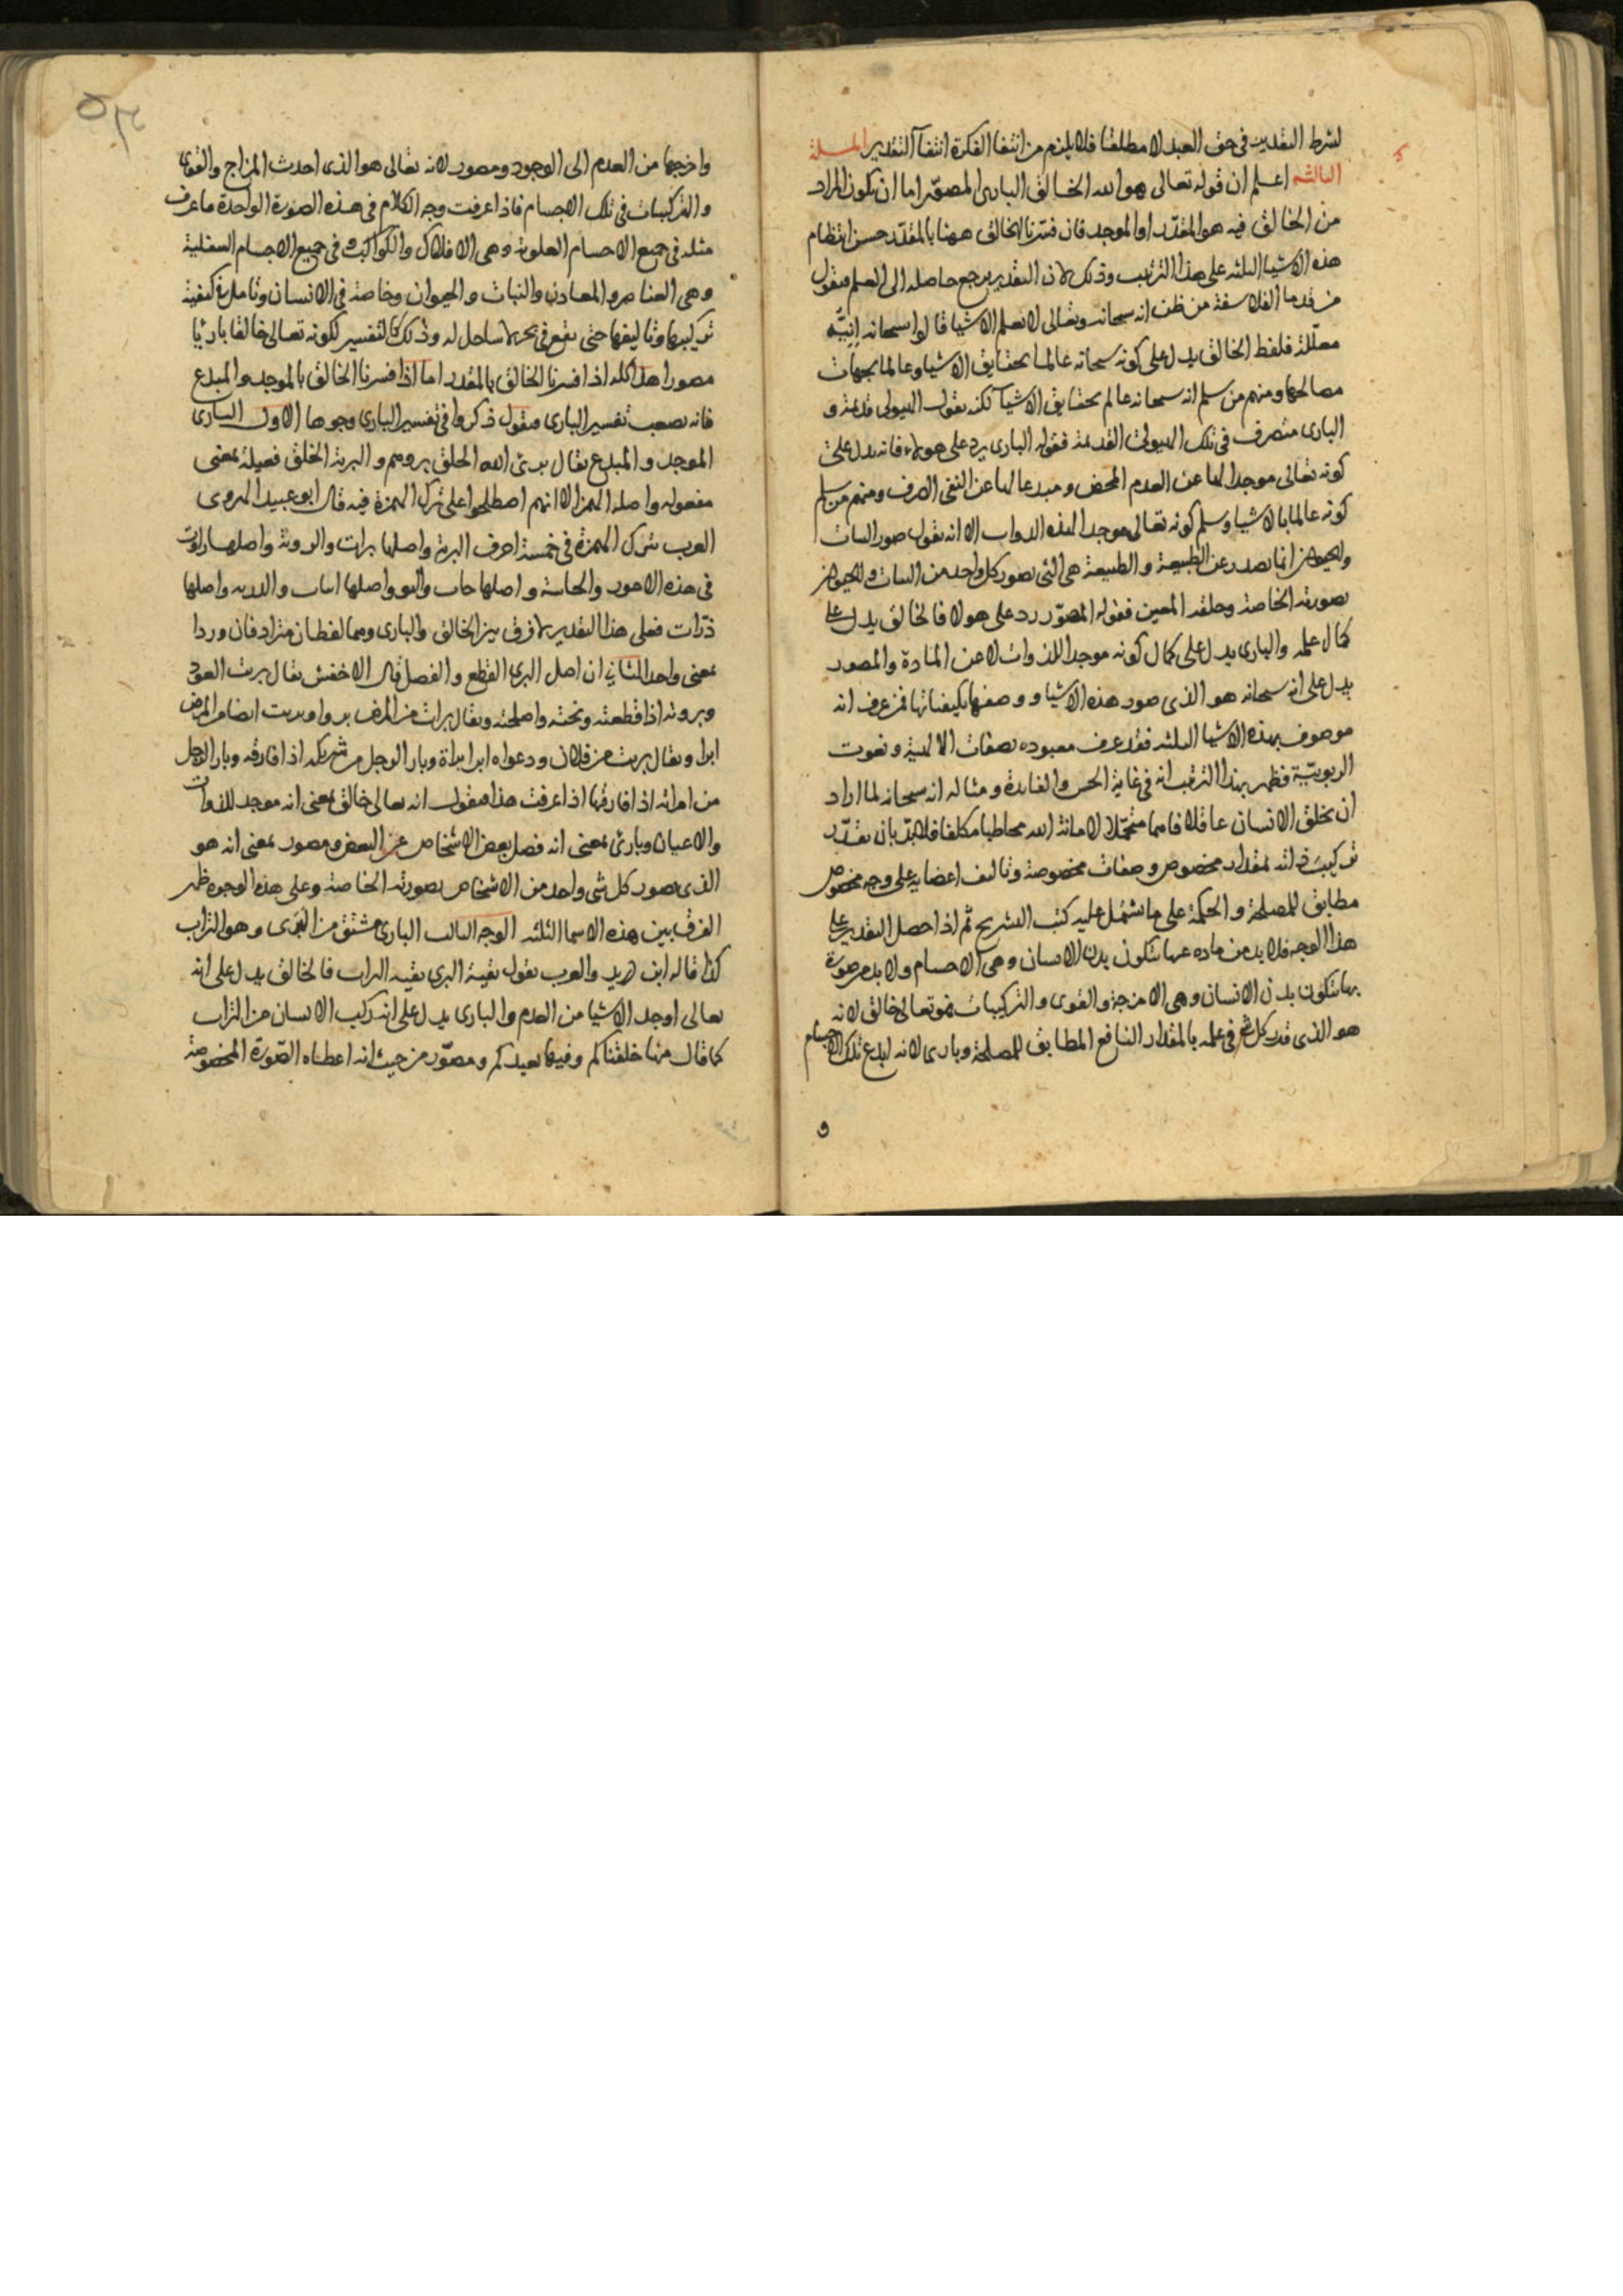 لشرط التقدير في حق العبد لا مطلقا فلا يلزم من انتفا الفكرة انتفآ التقدير المسلة
الثالثه اعلم ان قوله تعالى هو الله الخالق البارى المصوّر اما ان يكون المراد
من الخالق فيه هو المقدّر او الموجد فان فسّرنا الخالق ههنا بالمقدّر حسن انتظام
هذه الاشيا الثلثه على هذا الترتيب وذلك لان التقدير يرجع حاصله الى العلم فنقول
من قدما الفلاسفة من ظن انه سبحانه وتعالى لا يعلم الاشيا قالوا سبحانه انيّه
معطّلة فلفظ الخالق يدل على كونه سبحانه عالما بحقايق الاشيا وعالما بجهات
مصالحها ومنهم من سلم انه سبحانه عالم بحقايق الاشيآ لكنه يقول الهيولى قديمة و
البارى متصرف في تلك الهيولى القديمة فقوله البارى يرد على هولاء فانه يدل على
كونه تعالى موجدا لها عن العدم المحض ومبدعا لها عن النفى الصرف ومنهم من سلم
كونه عالما بالاشيا وسلم كونه تعالى موجدا لهذه الذوات الا انه يقول صور النبات
والحيوان انما تصدر عن الطبيعة والطبيعة هى التى تصور كل واحد من النبات والحيوان
بصورته الخاصة وخلقه المعين فقوله المصوّر رد على هولا فالخالق يدل على
كمال علمه والبارى يدل على كمال كونه موجدا للذوات لا عن المادة والمصور
يدل على انه سبحانه هو الذى صور هذه الاشيا ووصفها بكيفياتها فمن عرف انه
موصوف بهذه الاشيا الثلثه فقد عرف معبوده بصفات الالهية ونعوت
الربوبيّة فظهر بهذا الترتيب انه في غاية الحسن والفايدة ومثاله انه سبحانه لما اراد
ان يخلق الانسان عاقلا فاهما متحمّلا لامانة الله مخاطبا مكلفا فلا بدّ بان يقدّر
تركيب ذاته بمقدار مخصوص وصفات مخصوصة وتاليف اعضايه على وجه مخصوص
مطابق للمصلحة والحكمة على ما يشتمل عليه كتب التشريح ثم اذا حصل التقدير على
هذا الوجه فلا بد من ماده عنها يتكون بدن الانسان وهى الاجسام ولا بد من صورة
بها يتكون بدن الانسان وهى الامزجة والقوى والتركيبات فهو تعالى خالق لانه
هو الذى قدر كل شى في علمه بالمقدار النافع المطابق للمصلحة وبارى لانه ابدع تلك الاجسام
و
واخرجها من العدم الى الوجود ومصور لانه تعالى هو الذى احدث المزاج والقوى
والتركيبات في تلك الاجسام فاذا عرفت وجه الكلام في هذه الصورة الواحدة فاعرف
مثله في جميع الاجسام العلوية وهى الافلاك والكواكب وفي جميع الاجسام السفلية
وهى العناصر والمعادن والنبات والحيوان وخاصة في الانسان وتامل في كيفية
تركيبها وتاليفها حتى تقع في بحر لا ساحل له وذلك كالتفسير لكونه تعالى خالقا باريًا
مصورا هذا كله اذا فسرنا الخالق بالمقدر اما اذا فسرنا الخالق بالموجد والمبدع
فانه يصعب تفسير البارى فنقول ذكروا في تفسير البارى وجوها الاول البارى
الموجد والمبدع يقال برئ الله الخلق يروهم والبرية الخلق فعيلة بمعنى
مفعوله واصله الهمز الا انهم اصطلحوا على ترك الهمزة فيه قال ابو عبيد الهروى
العرب تترك الهمزة في خمسة احرف البرية واصلها برات والروية واصلها راوت
في هذه الامور والخابية واصلها خاب والنبو واصلها انبات والذريه واصلها
ذرّات فعلى هذا التقدير لا فرق بين الخالق والبارى وهما لفظان مترادفان وردا
بمعنى واحد الثاني ان اصل البرى القطع والفصل قال الاخفش يقال بريت العود
وبروته اذا قطعته ونحته واصلحته ويقال برات من المرض بروا وبريت ايضا من المرض
ابرا ويقال بريت من فلان ودعواه ابرا براة وبارا الرجل من شريكه اذا فارقه وبارا الرجل
من امراته اذا فارقها اذا عرفت هذا فنقول انه تعالى خالق بمعنى انه موجد للذوات
والاعيان وبارئ بمعنى انه فصل بعض الاشخاص عن البعض ومصور بمعنى انه هو
الذى يصور كل شى واحد من الاشخاص بصورته الخاصة وعلى هذه الوجوه ظهر
الفرق بين هذه الاسما الثلثه الوجه الثالث البارى مشتق من البَرَى وهو التراب
كذا قاله ابن دريد والعرب تقول بفيه البرى بفيه التراب فالخالق يدل على انه
تعالى اوجد الاشيا من العدم والبارى يدل على انه ركب الانسان من التراب
كما قال منها خلقناكم وفيها نعيدكم ومصوّر من حيث انه اعطاه الصّورة المخصوصة